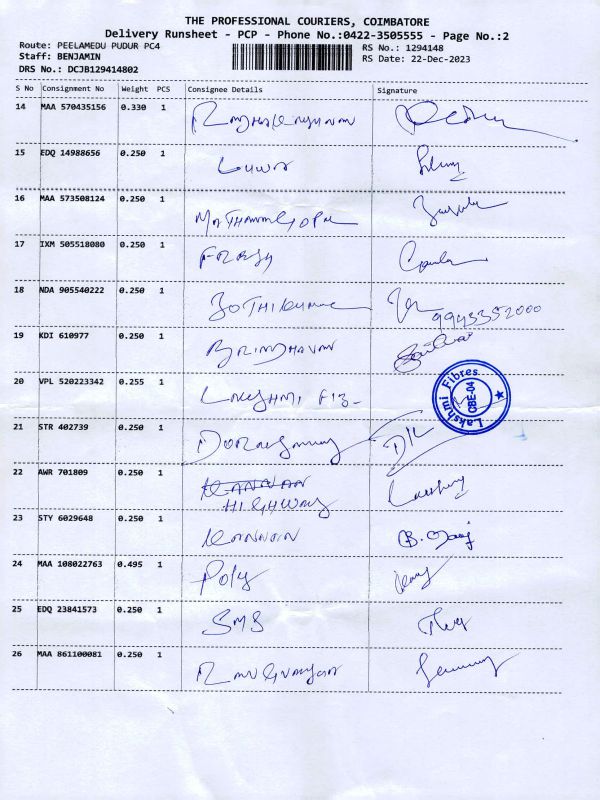 THE PROFESSIONAL COURIERS, COIMBATORE
Delivery Runsheet - PCP - Phone No.:0422-3505555 - Page No.:2
Route: PEELAMEDU PUDUR PC4
RS No.: 1294148
Staff: BENJAMIN
RS Date: 22-Dec-2023
DRS No.: DCJB129414802
S No Consignment No Weight PCS Consignee Details Signature
14 MAA 570435156 0.330 1
15 EDQ 14988656 0.250 1
16 MAA 573508124 0.250 1
17 IXM 505518080 0.250 1
18 NDA 905540222 0.250 1 JOTHIKUMAR
9943352000
19 KDI 610977 0.250 1 BRINDHAVAN
20 VPL 520223342 0.255 1 LAKSHMI FIB-
Lakshmi Fibres CBE-04
21 STR 402739 0.250 1
22 AWR 701809 0.250 1 KANNAN
HIGHWAY
23 STY 6029648 0.250 1 KANNAN
24 MAA 108022763 0.495 1 Poly
25 EDQ 23841573 0.250 1 SMS
26 MAA 861100081 0.250 1